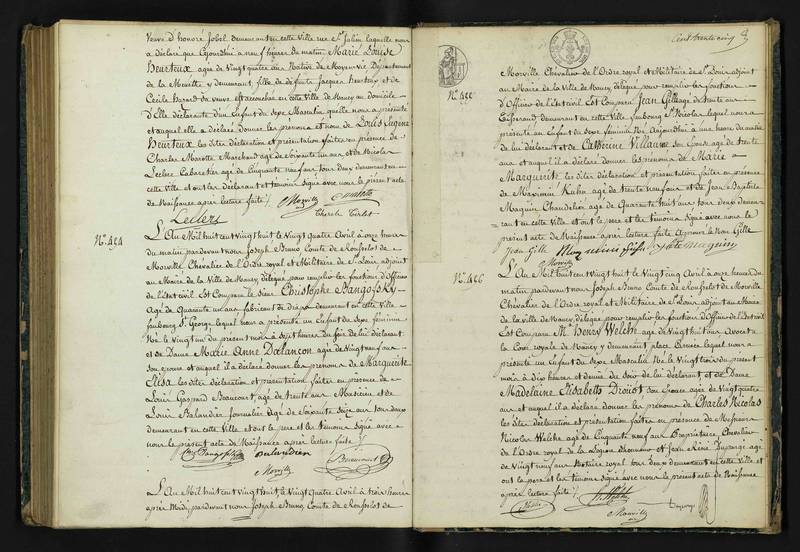 Veuve d'honoré Jobel demeurant en cette Ville rue St. Julien laquelle nous
a déclaré que Aujourdhui à neuf heures du matin Marie Louise
Heurteux agée de Vingt quatre ans Native de Moyenvic Département
de la Meurthe y demeurant, fille de défunts Jacques Heurteux et de
Cécile huzard du veuve est accouchée en cette Ville de Nancy au domicile
D'elle déclarante d'un Enfant du Sexe Masculin qu'elle nous a présenté
et auquel elle a déclaré donner les prénoms et nom de Louis Eugène
Heurteux les dites déclaration et présentation faites en présence de
Charles Marotte Marchand agé de Soixante un ans et de Nicolas
Leclerc Cabaretier agé de Cinquante neuf ans tous deux demeurant en
cette Ville et ont les déclarant et témoins Signé avec nous le présent acte
de Naissance après lecture faite
Leclerc
No. 454
L'An Mil huit cent Vingt huit le Vingt quatre Avril à onze heures
du matin pardevant nous Joseph Bruno Comte de Ronfselot de
Morville Chevalier de l'Ordre royal et Militaire de St. Louis adjoint
au Maire de la Ville de Nancy délégué pour remplir les fonctions d'Officier
de l'Etat civil Est Comparu le Sieur Christophe Bangofsky
Agé de Quarante un ans fabricant de draps demeurant en cette Ville
faubourg St. George lequel nous a présenté un Enfant du Sexe féminin
Né le Vingt un du présent mois à Sept heures du soir de lui déclarant
et de Dame Marie Anne Dalançon agée de Vingt neuf ans
Son épouse et auquel il a déclaré donner les prénoms de Marguerite
Elisa les dites déclaration et présentation faites en présence de
Louis Gaspard Beaucourt, agé de trente ans Musicien et de
Louis Balandier Journalier agé de Soixante Seize ans tous deux
demeurant en cette Ville et ont le père et les témoins Signé avec
nous le présent acte de Naissance après lecture faite
Balandier
Beaucourt
Morville
L'An Mil huit cent Vingt huit le Vingt quatre Avril à trois heures
après Midy pardevant nous Joseph Bruno Comte de Ronfselot de
Cent trente cinq
No. 455
Morville Chevalier de l'Ordre royal et Militaire de St. Louis adjoint
au Maire de la Ville de Nancy délégué pour remplir les fonctions
D'Officier de l'Etat civil Est Comparu Jean Gille agé de trente ans
demeurant en cette Ville faubourg St. Nicolas lequel nous a
présenté un Enfant du Sexe féminin Né Aujourdhui à une heure du matin
de lui déclarant et de Catherine Villaume Son épouse agée de trente
ans et auquel il a déclaré donner les prénoms de Marie
Marguerite les dites déclaration et présentation faites en présence
de Maximin Kuhn agé de trente neuf ans et de Jean Baptiste
Maguin Chandelier agé de Quarante huit ans tous deux demeu-
rant en cette Ville et ont le père et les témoins Signé avec nous le
présent acte de Naissance après lecture faite
Jean Gille
Morville
No. 456
L'An Mil huit cent Vingt huit le Vingt cinq Avril à onze heures du
matin pardevant nous Joseph Bruno Comte de Ronfselot de Morville
Chevalier de l'Ordre royal et Militaire de St. Louis adjoint au Maire
de la Ville de Nancy, délégué pour remplir les fonctions d'Officier de l'Etat civil
Est Comparu Mr. Henry Welche agé de Vingt huit ans Avocat à
la Cour royale de Nancy y demeurant place lequel nous a
présenté un Enfant du Sexe Masculin Né le Vingt trois du présent
mois à Dix heures et demie du Soir de lui déclarant et de Dame
Madelaine Elisabeth Drouot Son épouse agée de Vingt quatre
ans et auquel il a déclaré donner les prénoms de Charles Nicolas
les dites déclaration et présentation faites en présence de Messieurs
Nicolas Welche agé de Cinquante neuf ans Propriétaire Chevalier
de l'Ordre royal de la Légion d'honneur et Jean René agé
de Vingt neuf ans Notaire royal tous deux demeurant en cette Ville et
ont le père et les témoins Signé avec nous le présent acte de Naissance
après lecture faite
Morville